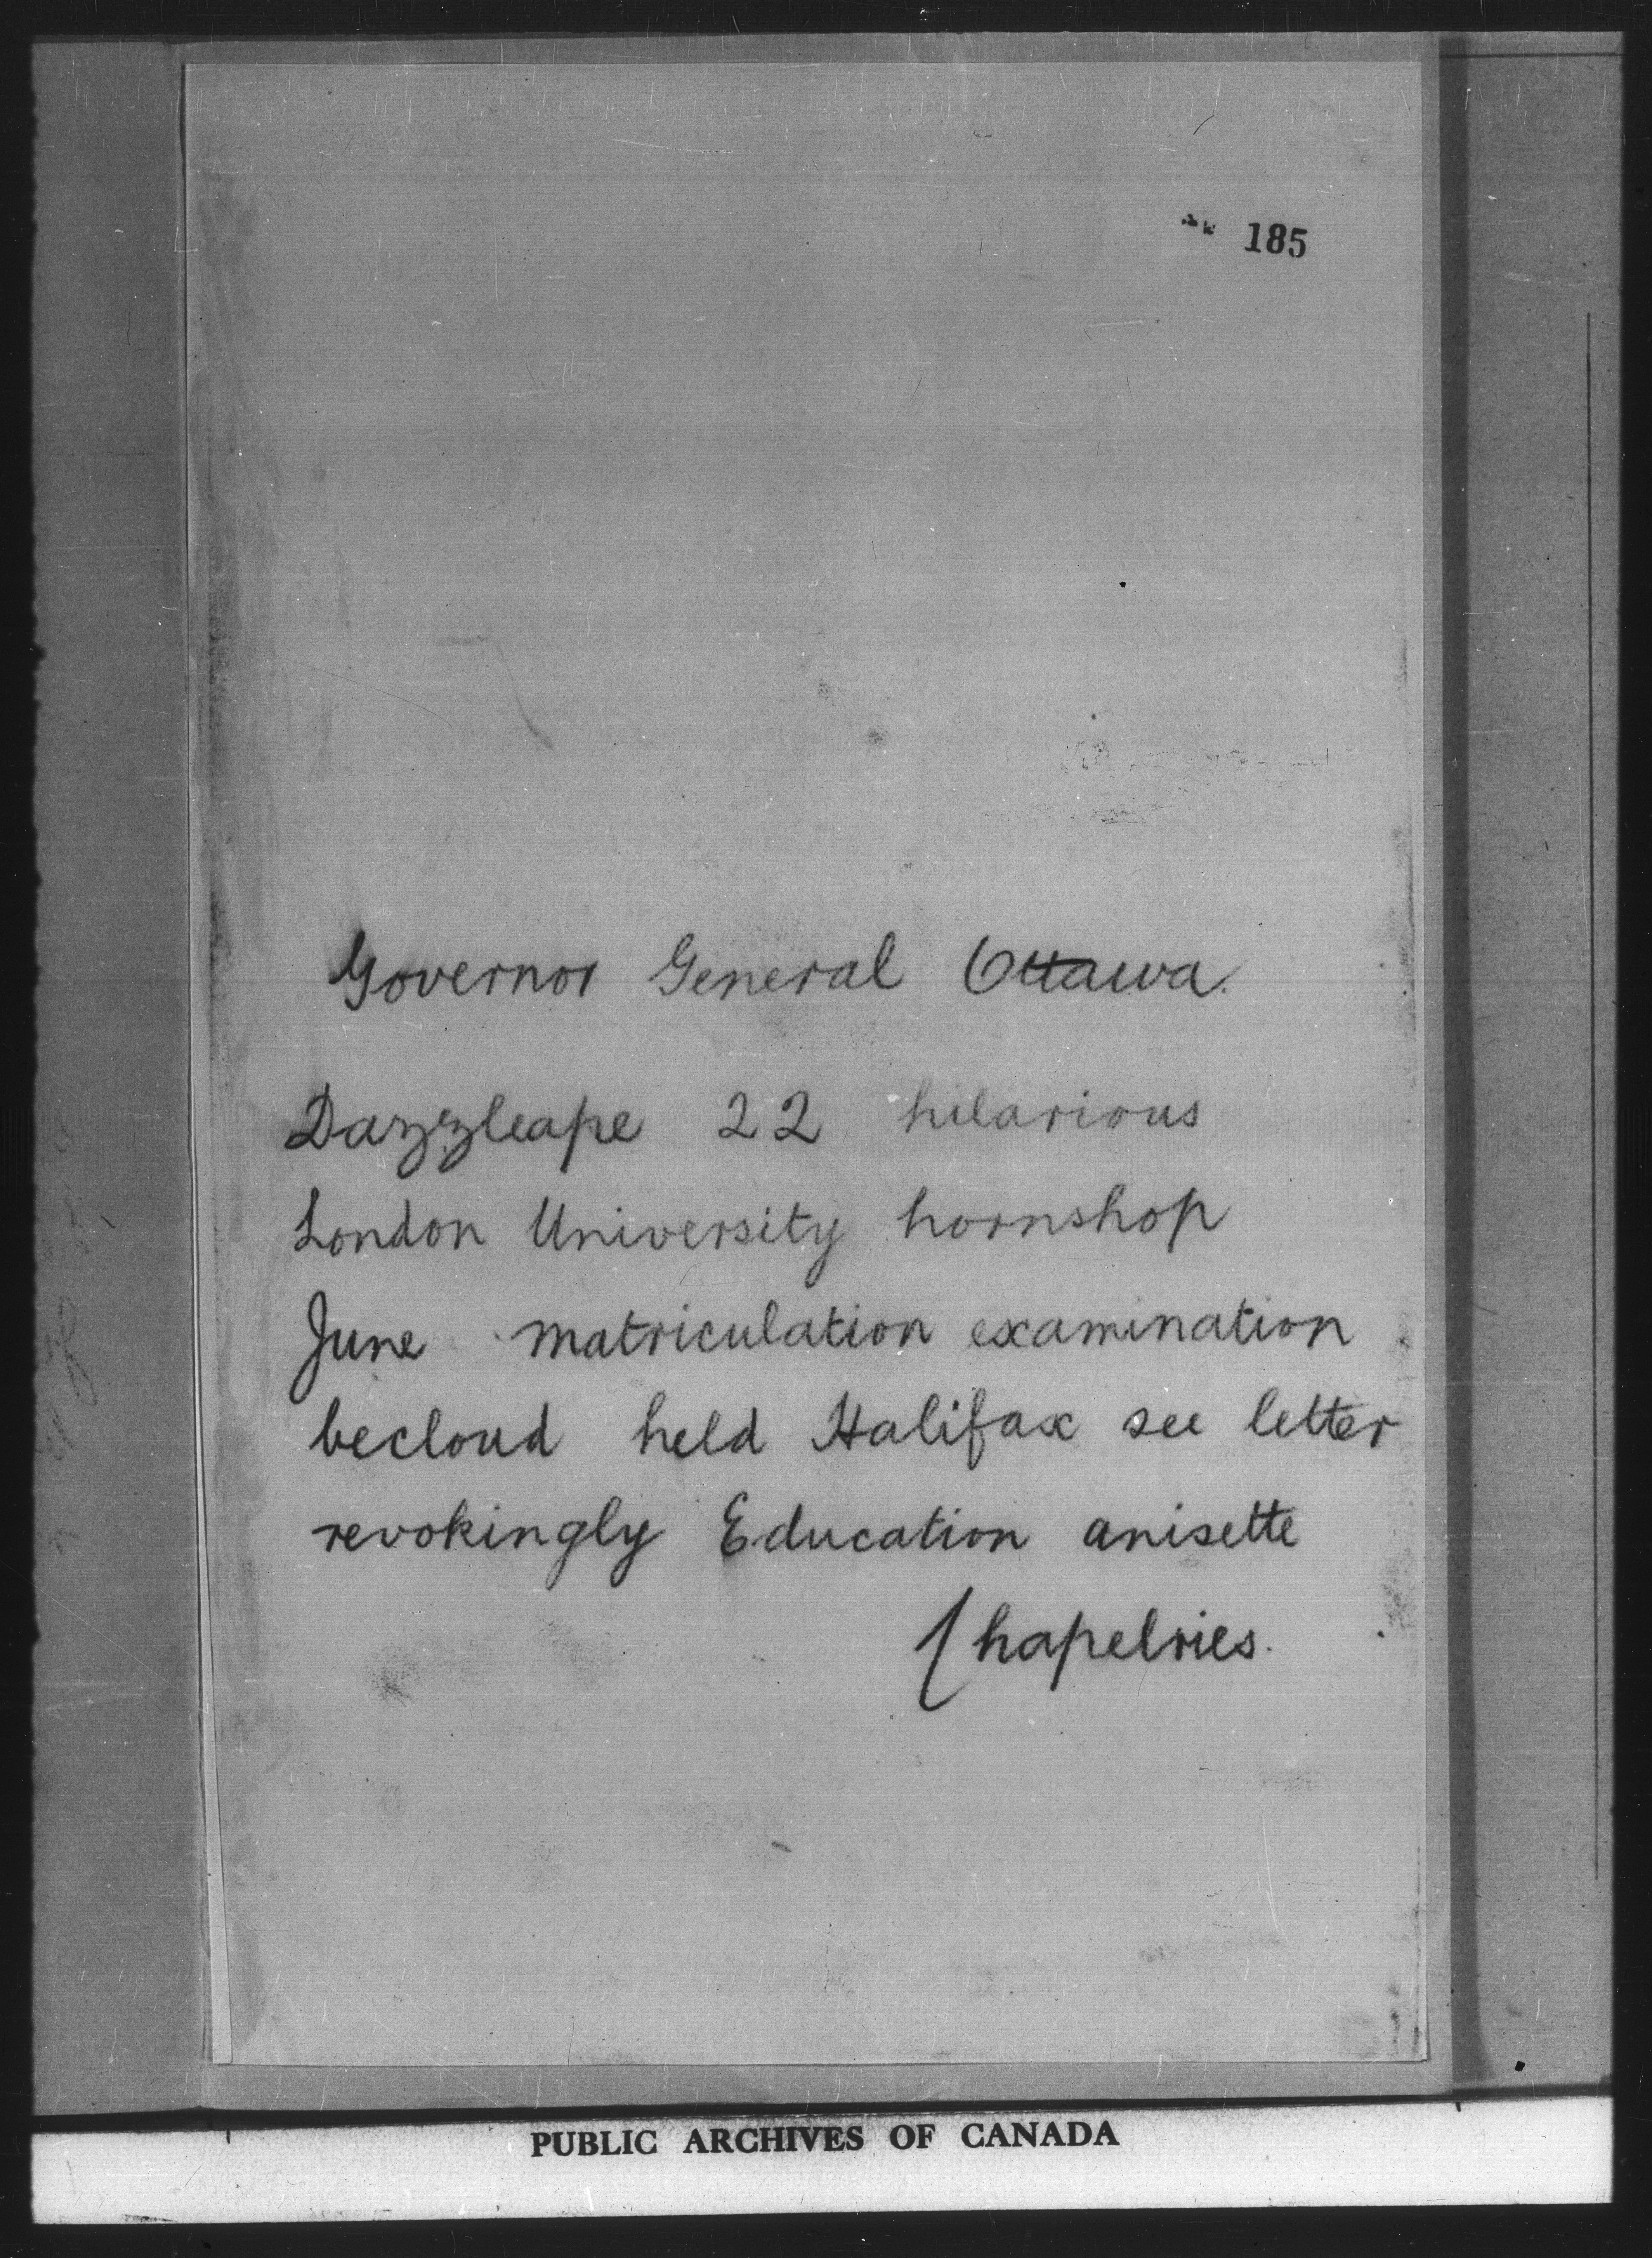 185
Governor General Ottawa.
Dazzleape 22 hilarious
London University hornshop
June matriculation examination
becloud held Halifax see letter
revokingly Education anisette
Chapelries.
PUBLIC ARCHIVES OF CANADA